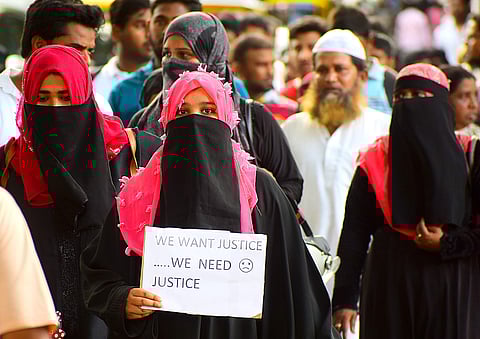 WE WANT JUSTICE
.....WE NEED ☹
JUSTICE